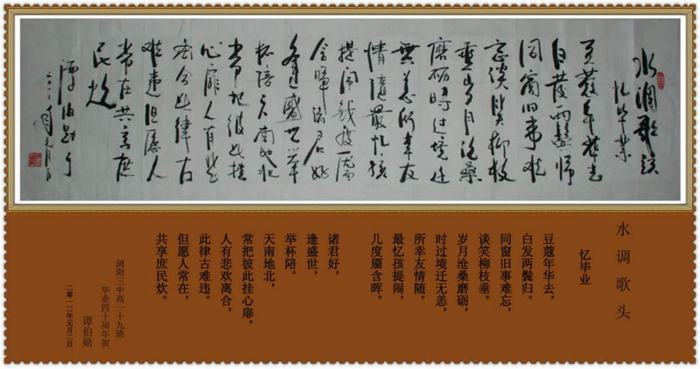 水調歌頭
忆毕业
豆蔻年華去
白发两鬓归
同窗旧事难
忘谈笑柳枝
垂岁月沧桑
磨砺时过境迁
無恙所幸友
情随最忆孩
提闹几度靥
含晖诸君好
逢盛世举
杯陪天南地北
常把彼此挂
心扉人有悲
离合此律古
难违但愿人
常在共享庶
民炊
二〇一二年元月二日
谭伯勋
水调歌头
忆毕业
豆蔻年华去，
白发两鬓归。
同窗旧事难忘，
谈笑柳枝垂。
岁月沧桑磨砺，
时过境迁无恙，
所幸友情随。
最忆孩提闹，
几度靥含晖。
诸君好，
逢盛世，
举杯陪。
天南地北，
常把彼此挂心扉。
人有悲欢离合，
此律古难违。
但愿人常在，
共享庶民炊。
浏阳三中高一十九班
毕业四十周年贺
谭伯勋
二〇一二年元月二日